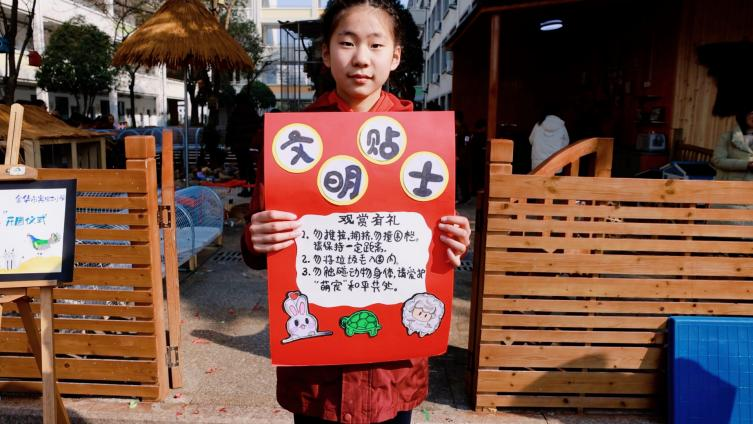 金华市
开园仪式
文明贴士
观赏有礼
1. 勿推搡,拥挤,勿撞围栏。
请保持一定距离.
2. 勿将垃圾丢入园内.
3. 勿触碰动物身体,请爱护
“萌宠”和平共处.